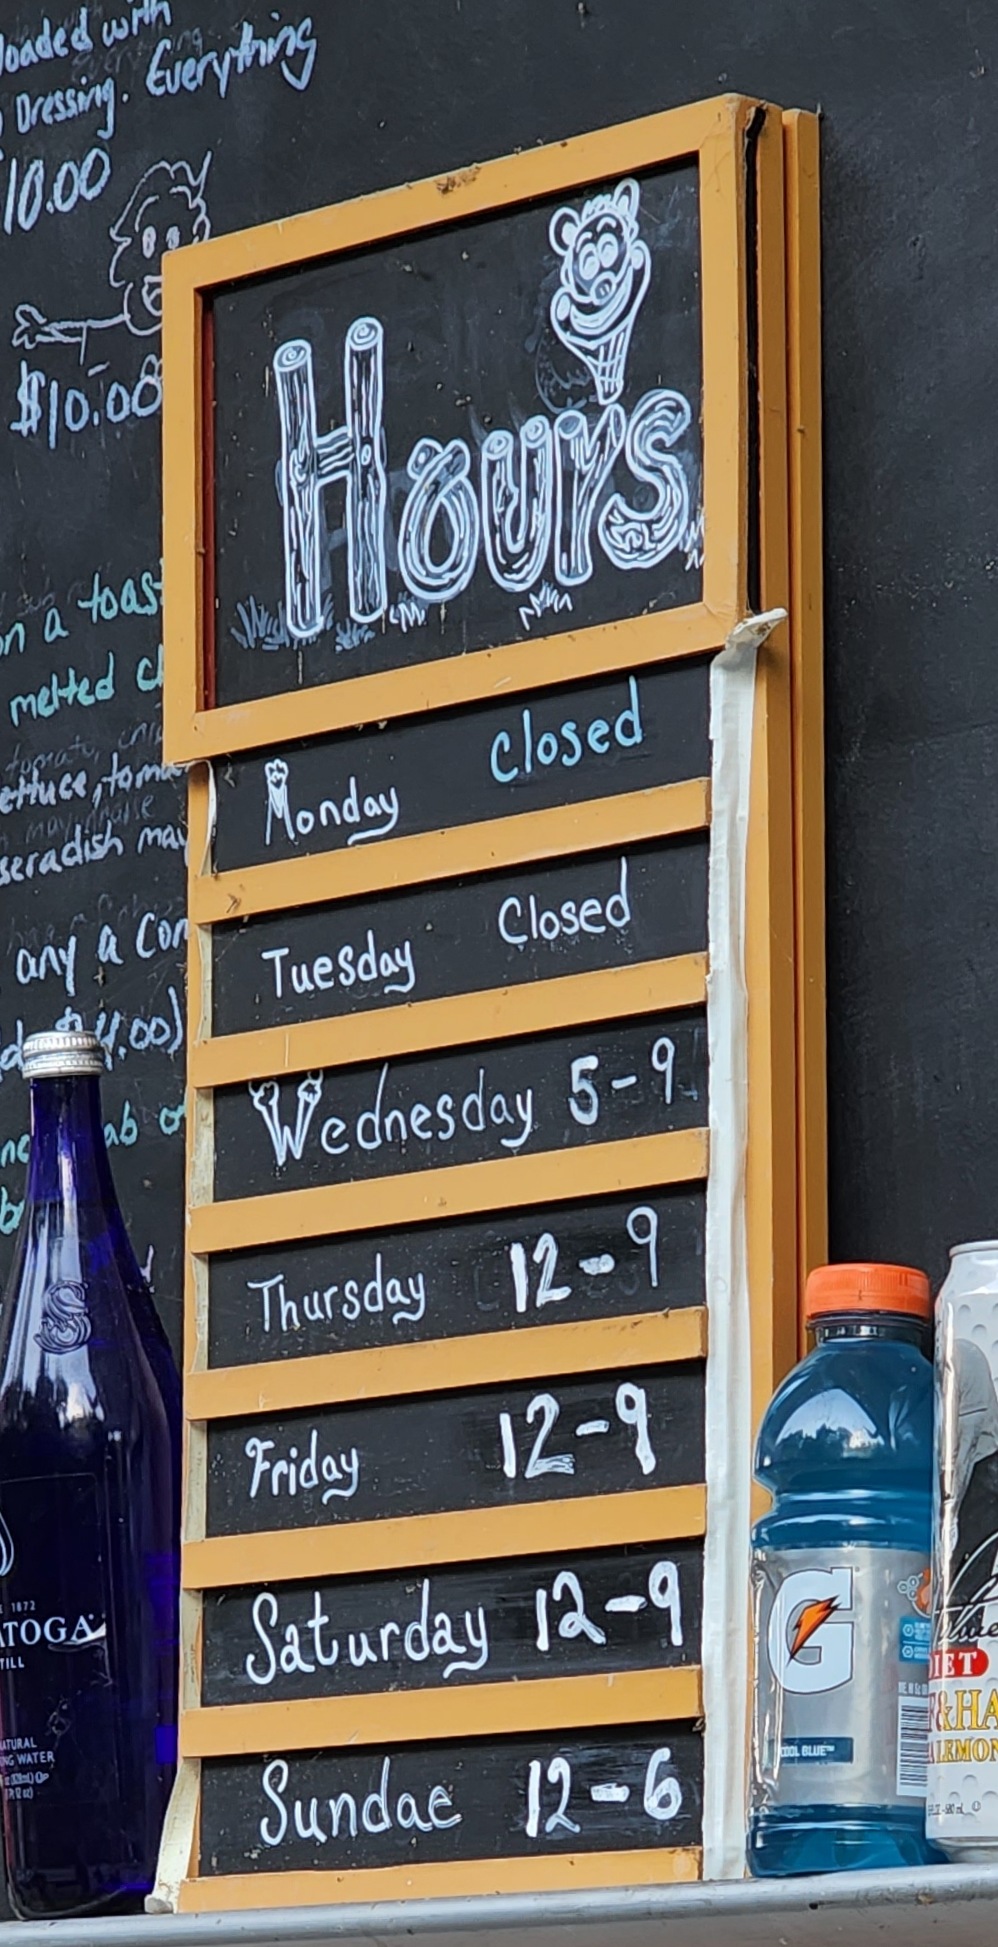 loaded with
Dressing. Everything
10.00
$10.00
Hours
on a toast
melted
lettuce, toma
any a
4.00)
Monday Closed
Tuesday Closed
Wednesday 5-9
Thursday 12-9
Friday 12-9
Saturday 12-9
Sundae 12-6
1872
ATOGA
TILL
NATURAL
WATER
G
COOL BLUE™
IET
&HA
LEMON